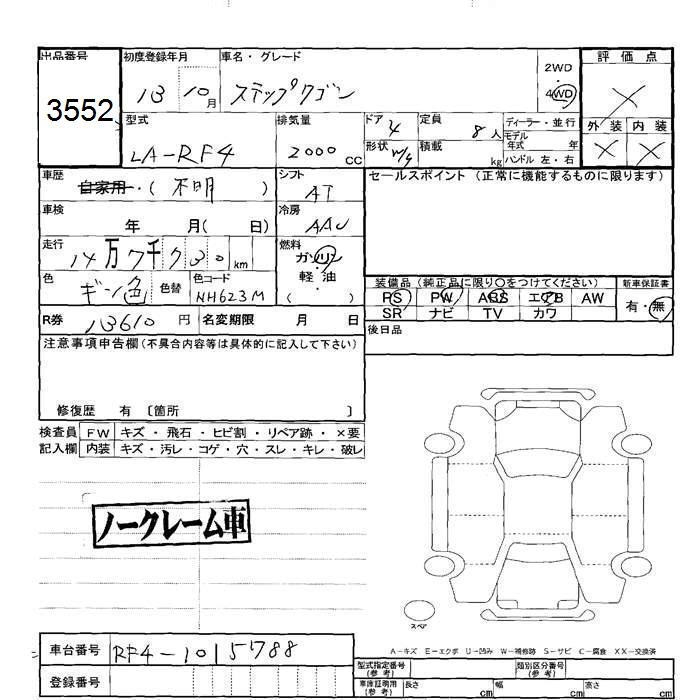 出品番号 初度登録年月 車名・グレード 評価点
3552 13 10月 ステップワゴン 2WD 4WD ×
型式 排気量 ドア 4 定員 8人 ディーラー・並行 外装 内装
LA-RF4 2000cc 形状 W/g 積載 kg モデル年式 年 × ×
ハンドル 左・右
車歴 自家用・(不明) シフト AT セールスポイント (正常に機能するものに限ります)
車検 年 月( 日) 冷房 AAC
走行 14万7千930km 燃料 ガソリン・軽油 ( )
色 ギン色 色替 色コード NH623M
装備品 (純正品に限り○をつけてください) 新車保証書
PS PW ABS エアB AW 有・無
SR ナビ TV カワ
R券 13610円 名変期限 月 日 後日品
注意事項申告欄(不具合内容等は具体的に記入して下さい)
修復歴 有 〔箇所 〕
検査員 FW キズ・飛石・ヒビ割・リペア跡・×要
記入欄 内装 キズ・汚レ・コゲ・穴・スレ・キレ・破レ
ノークレーム車
スペア
A−キズ E−エクボ U−凹み W−補修跡 S−サビ C−腐食 XX−交換済
車台番号 RF4-1015788
登録番号
型式指定番号 (参考) 類別区分番号 (参考)
車庫証明用 (参考) 長さ cm 幅 cm 高さ cm